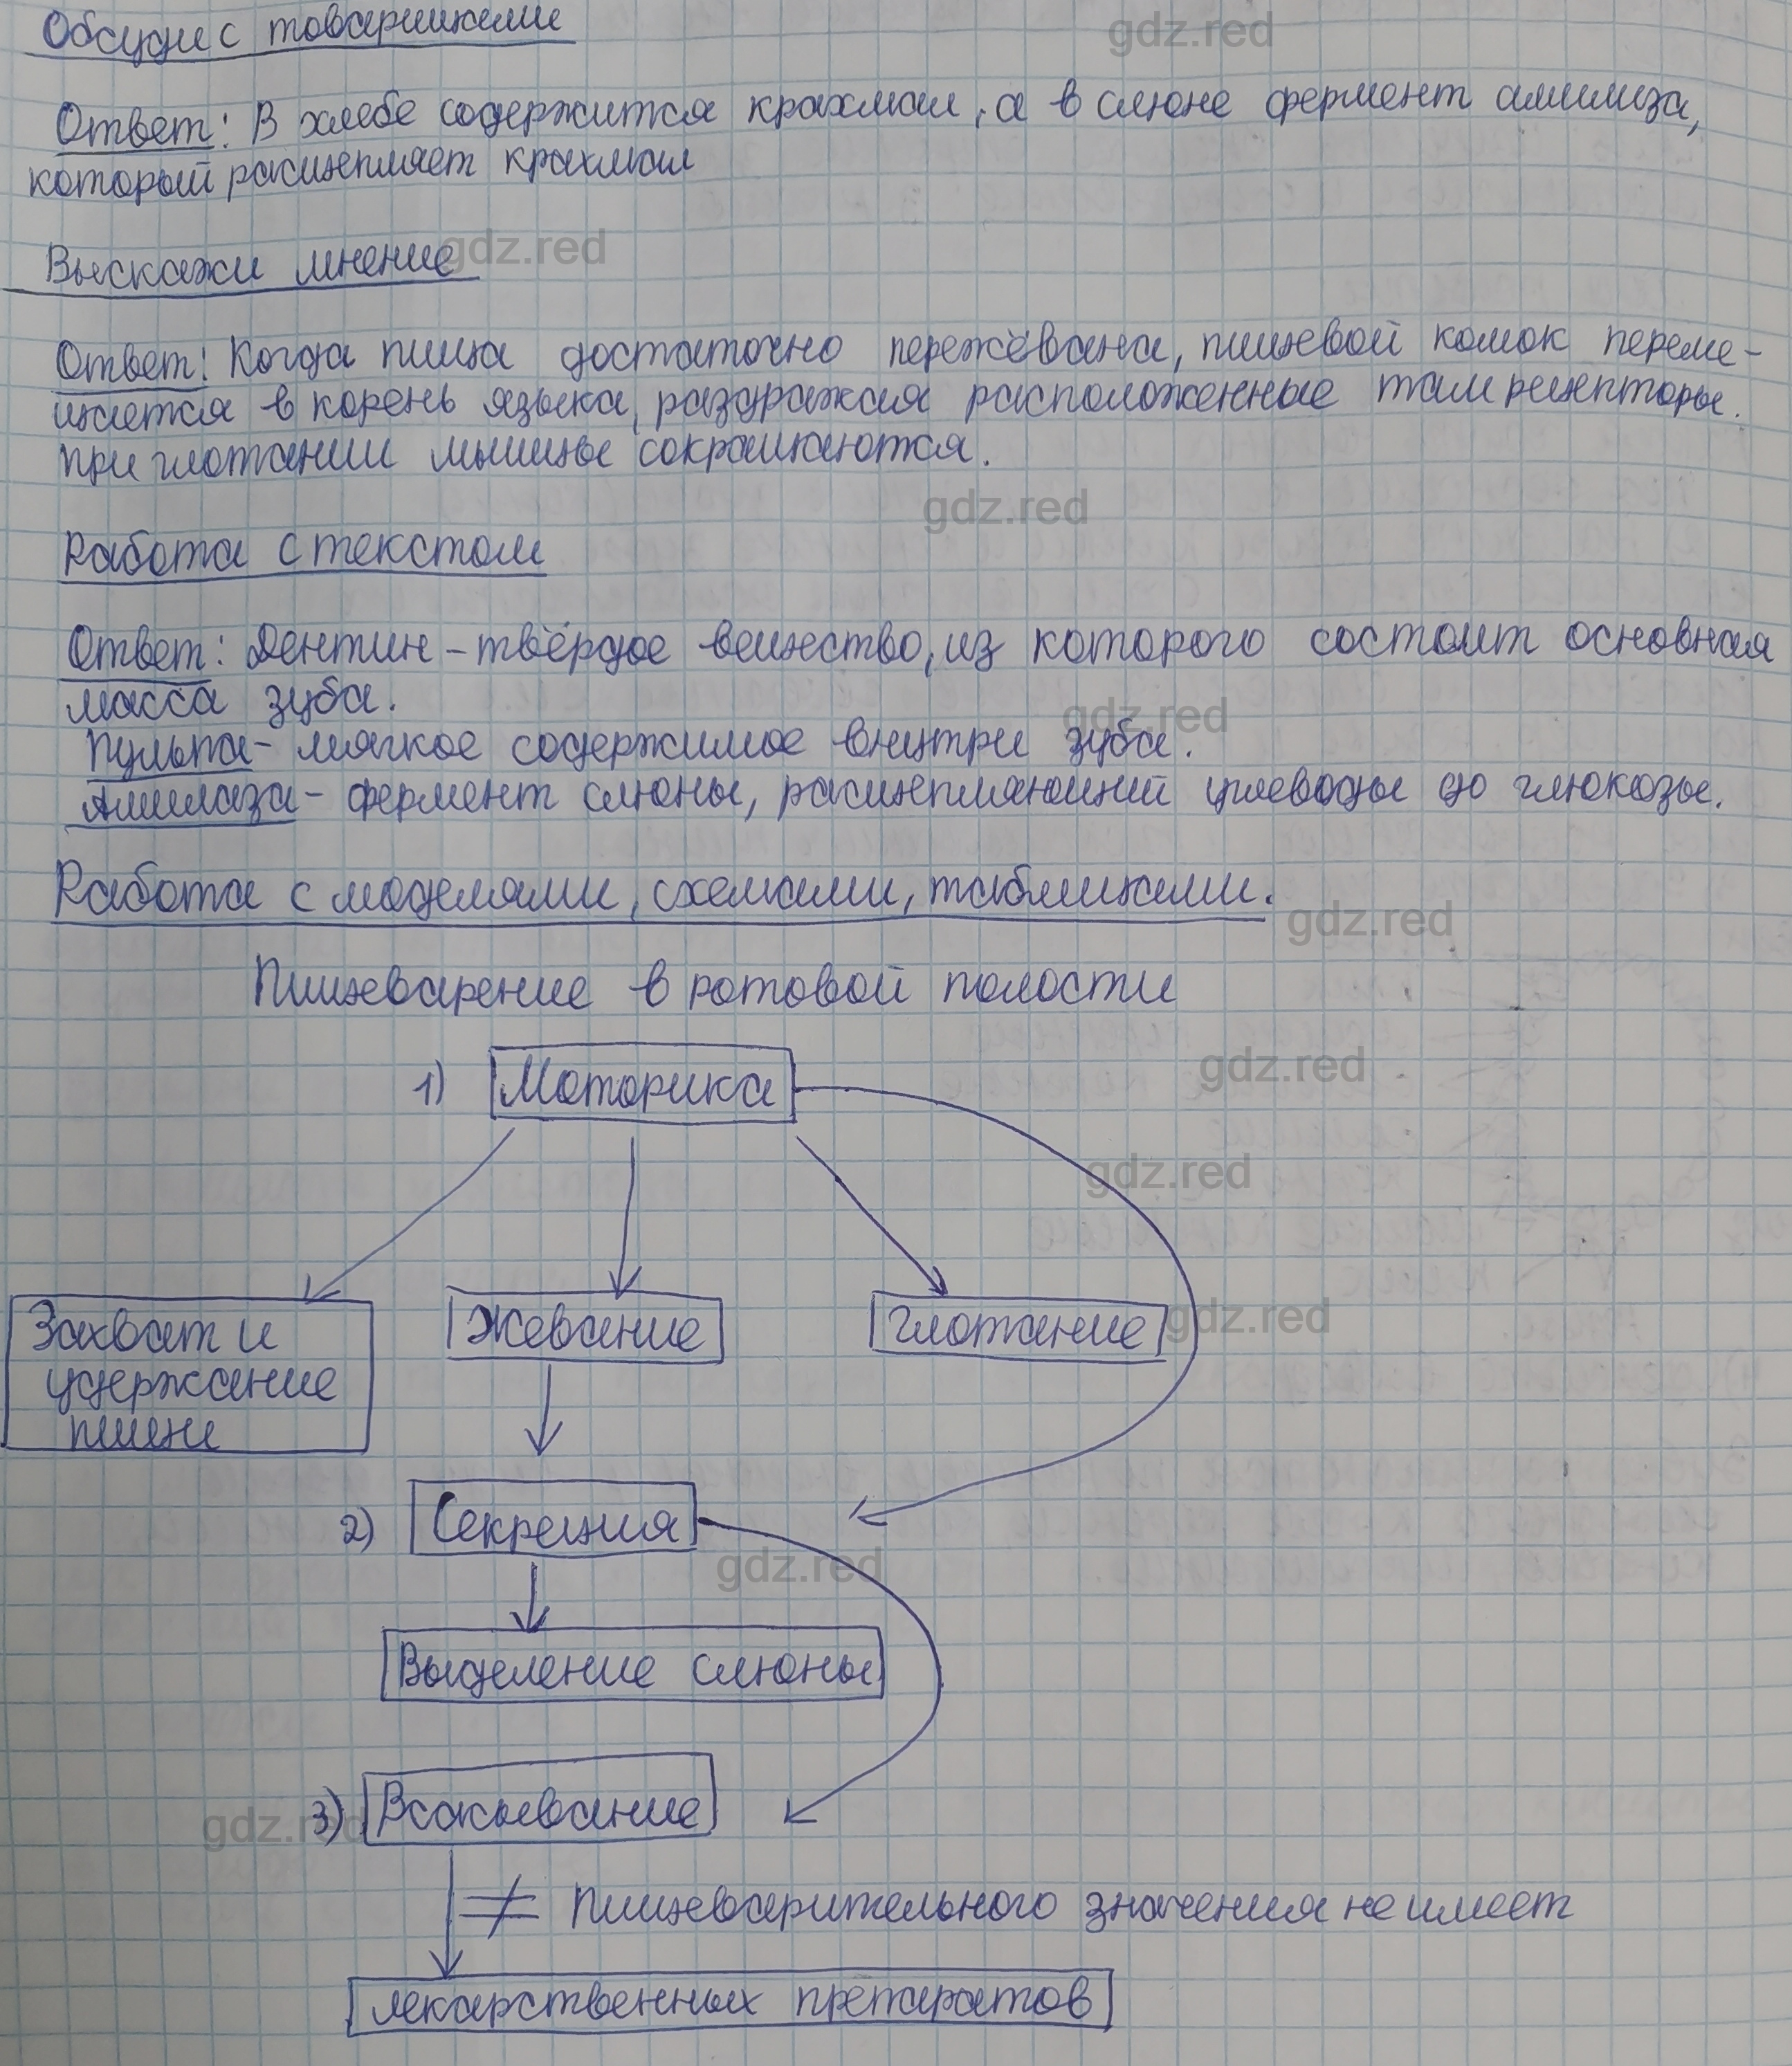 Обсуди с товарищами
gdz.red
Ответ: В хлебе содержится крахмал, а в слюне фермент амилаза,
который расщепляет крахмал
Выскажи мнение
gdz.red
Ответ: Когда пища достаточно пережёвана, пищевой комок переме-
щается в корень языка, раздражая расположенные там рецепторы.
При глотании мышцы сокращаются.
gdz.red
Работа с текстом
Ответ: Дентин – твёрдое вещество, из которого состоит основная
масса зуба.
gdz.red
Пульпа – мягкое содержимое внутри зуба.
Амилаза – фермент слюны, расщепляющий углеводы до глюкозы.
Работа с моделями, схемами, таблицами.
gdz.red
Пищеварение в ротовой полости
1) Моторика
gdz.red
gdz.red
Захват и
удержание
пищи
Жевание
Глотание
gdz.red
2) Секреция
gdz.red
Выделение слюны
3) Всасывание
gdz.red
≠ Пищеварительного значения не имеет
лекарственных препаратов